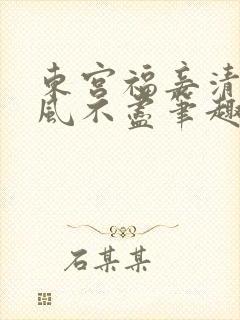 東宮福妾清
風不盡筆趣
石某某